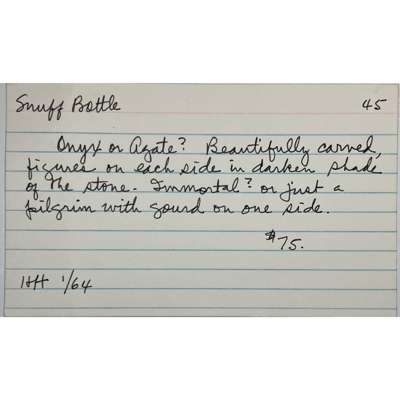 Snuff Bottle 45
Onyx or Agate? Beautifully carved,
figures on each side in darker shade
of the stone. Immortal? or just a
pilgrim with gourd on one side.
$75.
HH 1/64